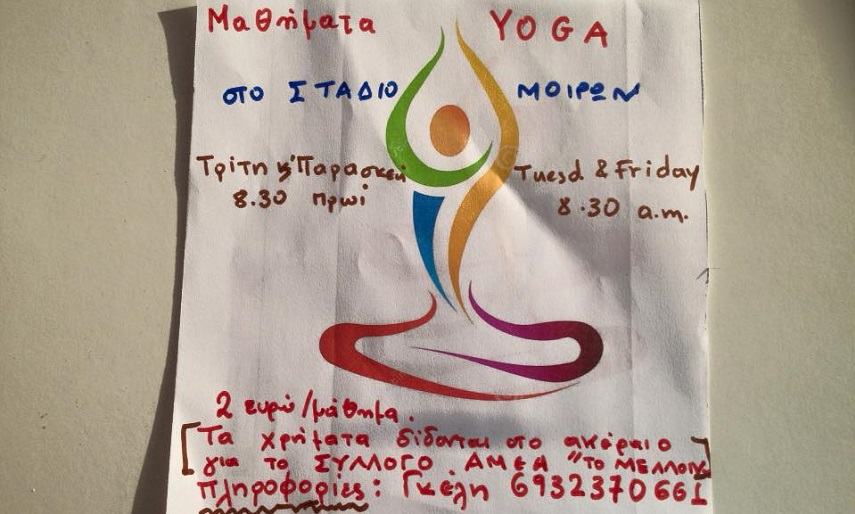 Μαθήματα YOGA
στο ΣΤΑΔΙΟ ΜΟΙΡΩΝ
Τρίτη κ' Παρασκευή Tuesd & Friday
8.30 πρωί 8.30 a.m.
2 ευρώ/μάθημα.
[Τα χρήματα δίδονται στο ακέραιο
για το ΣΥΛΛΟΓΟ ΑΜΕΑ "ΤΟ ΜΕΛΛΟΝ"]
Πληροφορίες: Γκέλη 6932370661